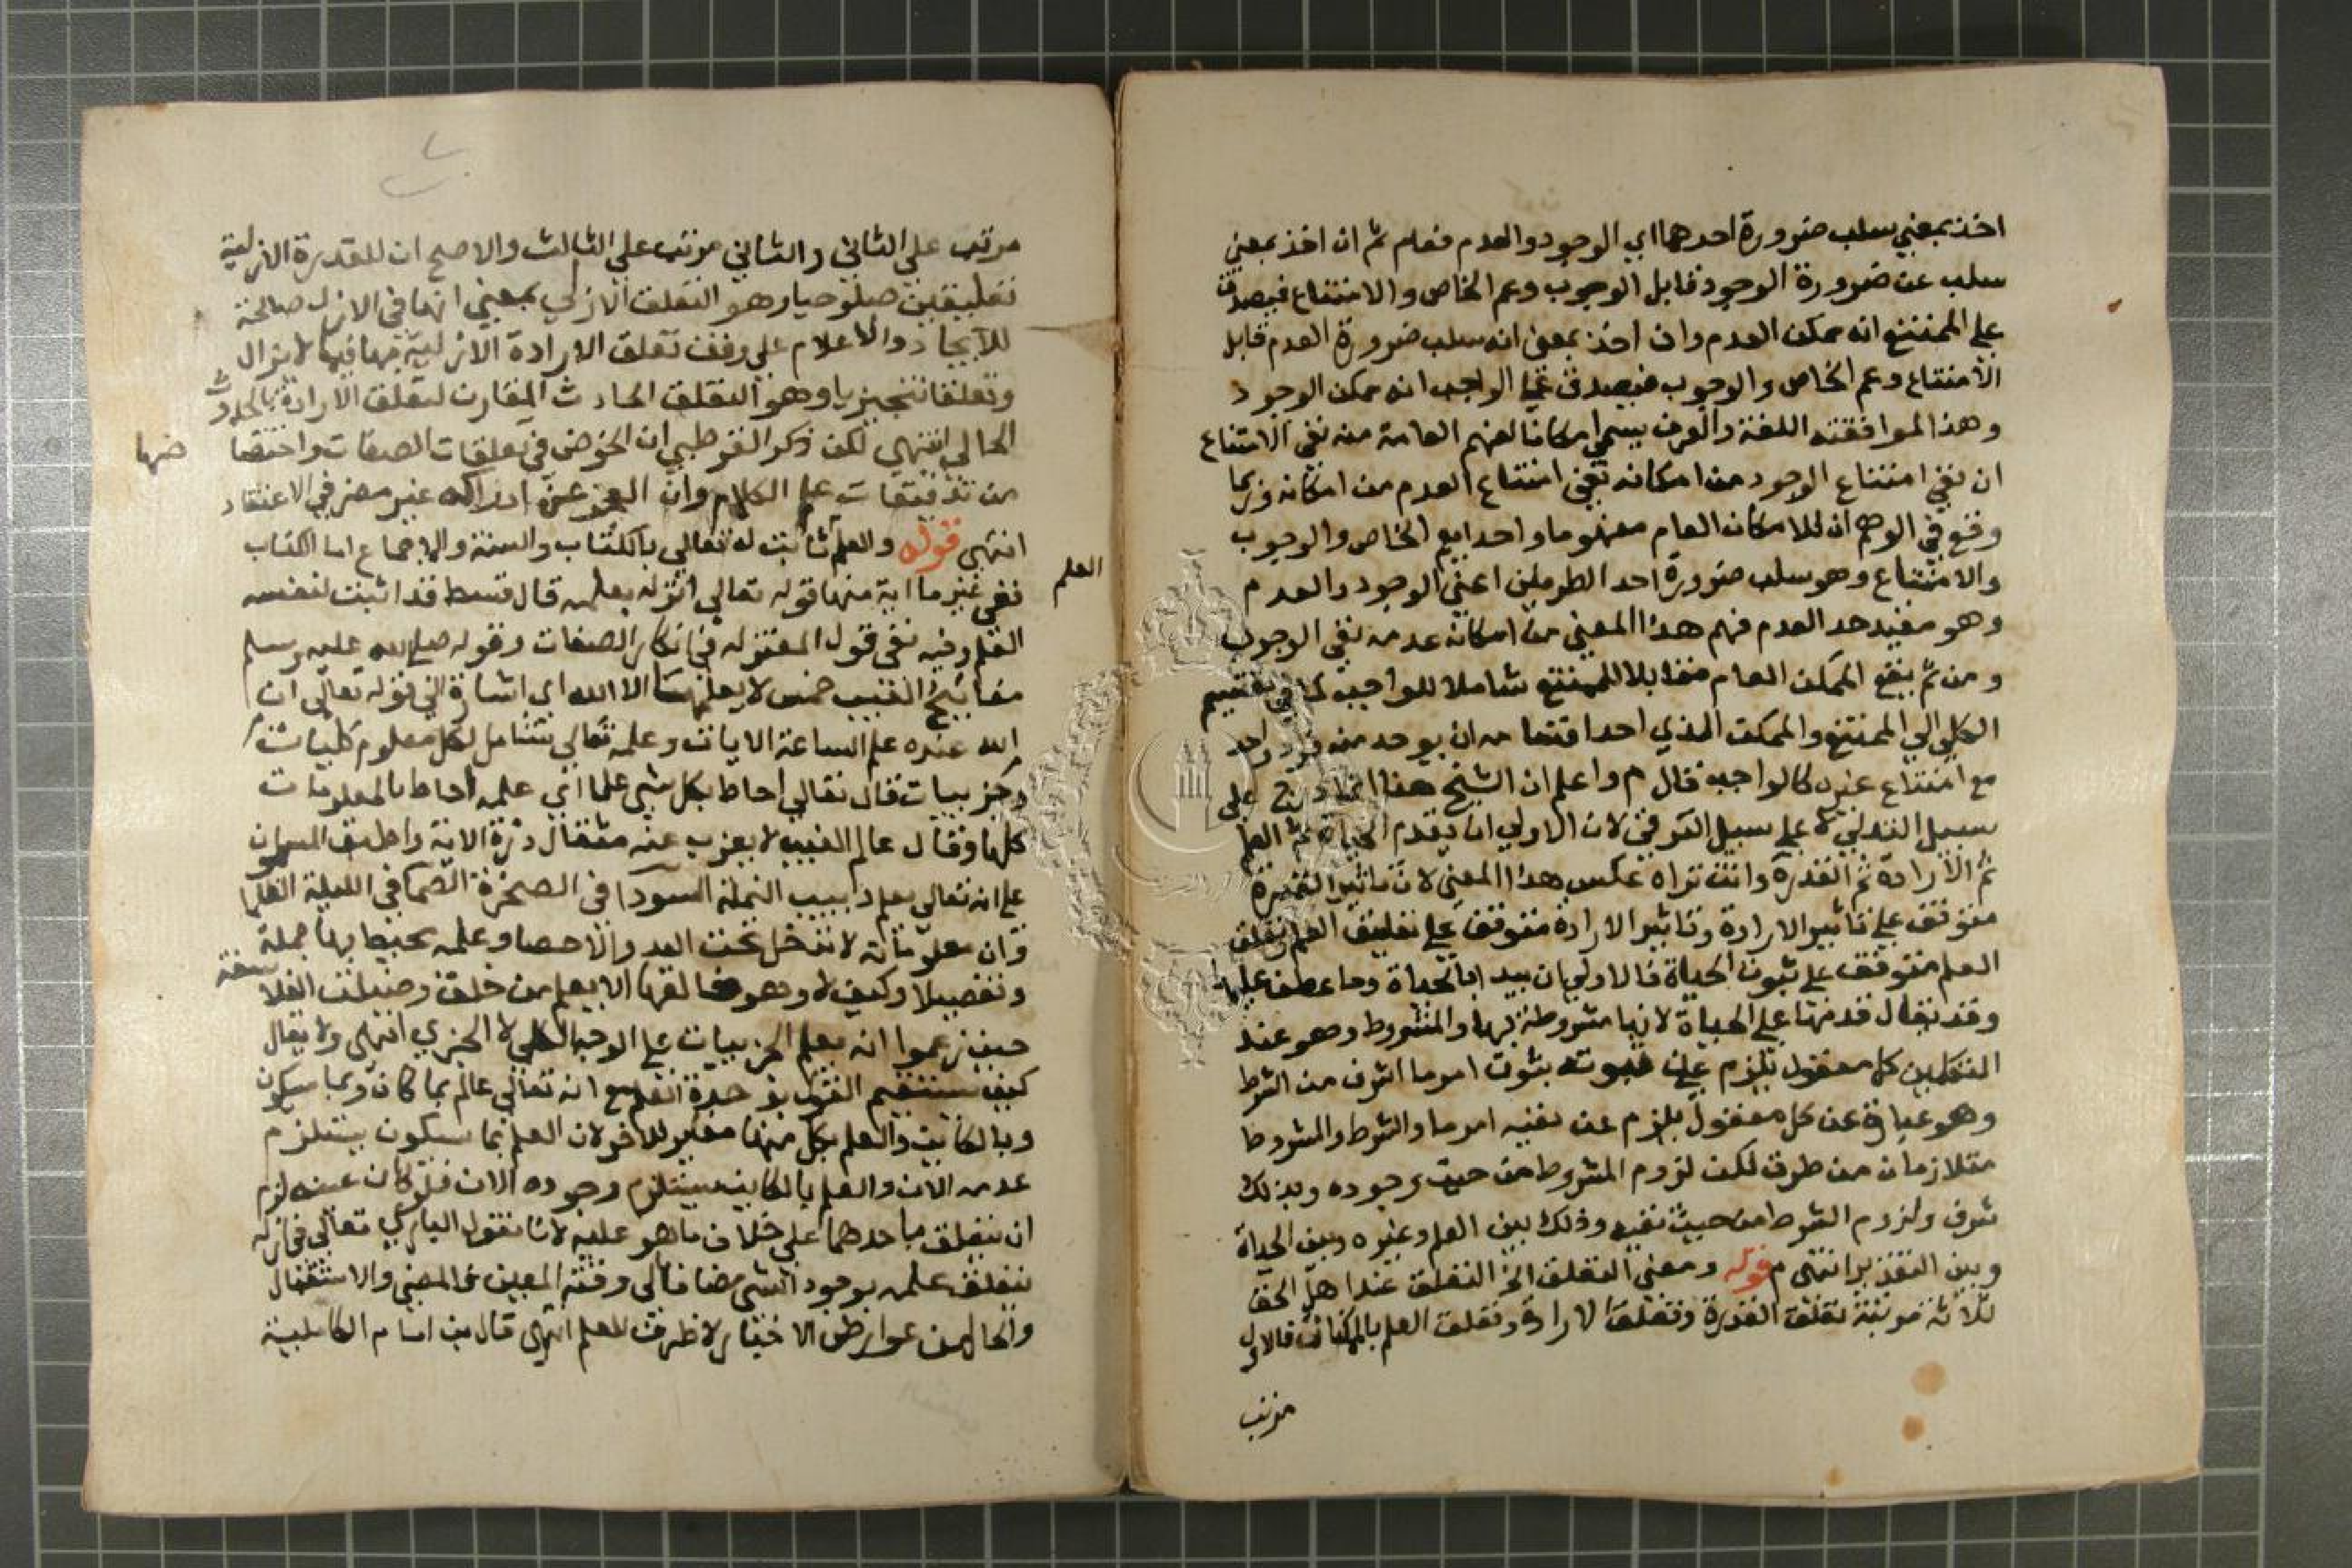 اخذ بمعني سلب ضرورة احدهما اي الوجود والعدم فعام ثم ان اخذ بمعني
سلب عن ضرورة الوجود قابل الوجوب وعم الخاص والامتناع فيصدق
علي الممتنع انه ممكن العدم وان اخذ بمعني انه سلب ضرورة العدم قابل
الامتناع وعم الخاص والوجوب فيصدق علي الواجب انه ممكن الوجود
وهذا لموافقته اللغة والعرف يسمي امكانا لفهم العامة منه نفي الامتناع
ان نفي امتناع الوجود من امكانه نفي امتناع العدم من امكانه وربما
وقع في الوهم ان للامكان العام مفهوما واحدا يعم الخاص والوجوب
والامتناع وهو سلب ضرورة احد الطرفين اعني الوجود والعدم
وهو مفيد حد العدم فهم هذا المعني من امكانه عدمه نفي الوجوب
ومن ثم يقع الممكن العام مقابلا للممتنع شاملا للواجب كما في تقسيم
الكلي الي الممتنع والممكن الذي احد اقسامه ان يوجد منه فرد واحد
مع امتناع غيره كالواجب قال م واعلم ان الشيخ هنا علي
سبيل التدلي لا علي سبيل الترقي لان الاولي ان يقدم الحياة ثم العلم
ثم الارادة ثم القدرة وانت تراه عكس هذا المعني لان تاثير القدرة
متوقف علي تاثير الارادة وتاثير الارادة متوقف علي تعليق العلم وتعلق
العلم متوقف علي ثبوت الحياة فالاولي ان يبدا بالحياة وما عطف عليها
وقد يقال قدمها علي الحياة لانها مشروطة بها والمشروط وهو عند
المتكلمين كل معقول يلزم علي ثبوته ثبوت امر ما اشرف من الشرط
وهو عبارة عن كل معقول يلزم عن نفيه امر ما والشرط والمشروط
متلازمان من طرف لكن لزوم المشروط من حيث وجوده وبذلك
شرف ولزوم الشرط من حيث نفيه وذلك بين العلم وغيره وبين الحياة
وبين التقدير انتهي م قوله ومعني التعلق الخ التعلق عند اهل الحق
ثلاثة مرتبة تعلق القدرة وتعلق الارادة وتعلق العلم بالممكنات فالاول
مرتب
مرتب علي الثاني والثاني مرتب علي الثالث والاصح ان للقدرة الازلية
تعليقين صلوحيا وهو التعلق الازلي بمعني انها في الازل صالحة
للايجاد والاعلام علي وفق تعلق الارادة الازلية بهما فيما لا يزال
وتعلقا تنجيزيا وهو التعلق الحادث المقارن لتعلق الارادة بالحدوث
الحالي انتهي لكن ذكر القرطبي ان الخوض في تعلقات الصفات واختصا
صها
من تدقيقات علم الكلام وان العجز عن ادراكه غير مضر في الاعتقاد
انتهي قوله والعلم ثابت له تعالي بالكتاب والسنة والاجماع اما الكتاب
العلم
ففي غير ما اية منها قوله تعالي انزله بعلمه قال قسط قد اثبت لنفسه
العلم وفيه نفي قول المعتزلة في انكار الصفات وقوله صلي الله عليه وسلم
مفاتيح الغيب خمس لا يعلمها الا الله اي اشارة الي قوله تعالي ان
الله عنده علم الساعة الايات وعلمه تعالي شامل لكل معلوم كليات
وجزييات قال تعالي احاط بكل شي علما اي علمه احاط بالمعلومات
كلها وقال عالم الغيب لا يعزب عنه مثقال ذرة الاية واطبق المسلمون
علي انه تعالي يعلم دبيب النملة السودا في الصخرة الصما في الليلة الظلما
وان معلوماته لا تدخل تحت العد والاحصا وعلمه محيط بها جملة
وتفصيلا وكيف لا وهو خالقها الا يعلم من خلق وضلت الفلاسفة
حيث زعموا انه يعلم الجزييات علي الوجه الكلي لا الجزي انتهي ولا يقال
كيف يستقيم القول بوحدة العلم مع انه تعالي عالم بما كان وبما سيكون
وبالكاين والعلم بكل منها مغير للاخر لان العلم بما سيكون يستلزم
عدمه الان والعلم بالكاين يستلزم وجوده الان فلو كان عينه لزم
ان يتعلق باحدهما علي خلاف ما هو عليه لانا نقول الباري تعالي في ازله
يتعلق علمه بوجود الشي مضافا الي وقته المعين والمضي والاستقبال
والحال من عوارض الاخبار لا ظرف للعلم انتهي قال بن امام الكاملية